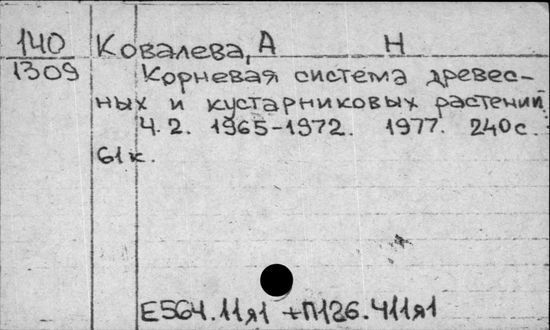 140
1309
Ковалева, А Н
Корневая система древес-
ных и кустарниковых растений.
Ч. 2. 1965-1972. 1977. 240 с.
61 к.
Е564.11я1 +П126.411я1